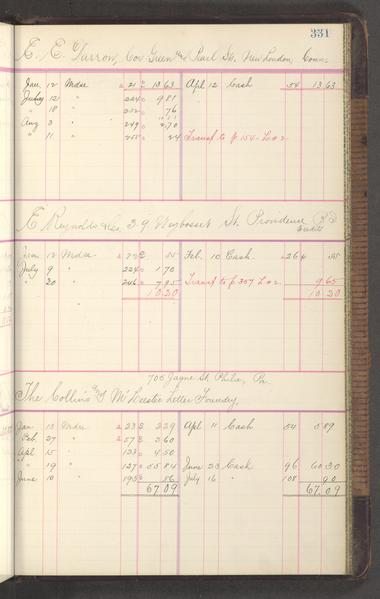 331
E. E. Darrow, Cor Green and Pearl Sts. New London, Conn.
Jan. 12 Mdse 21 13 63 Apl 12 Cash 54 13 63
July 121 " 224 9 81
" 18 " 76
Aug 3 " 249 2 70
" 11 " 255 24 Transf to p 154 L o 2
E Reynolds & Co. 39 Weybosset St. Providence R I
Jan 12 Mdse 22 55 Feb. 10 Cash 26 55
July 9 " 224 1 70
" 20 " 246 7 95 Transf to p 307 L o 2 9 65
10 20 10 20
705 Jayne St. Phila, Pa.
The Collins and McLeester Letter Foundry,
Jan 13 Mdse 23 2 29 Apl 11 Cash 54 5 89
Feb. 27 " 57 3 60
Apl 15 " 123 4 50
" 19 " 127 55 84 June 23 Cash 96 60 30
June 10 " 195 86 July 16 " 108 90
67 09 67 09